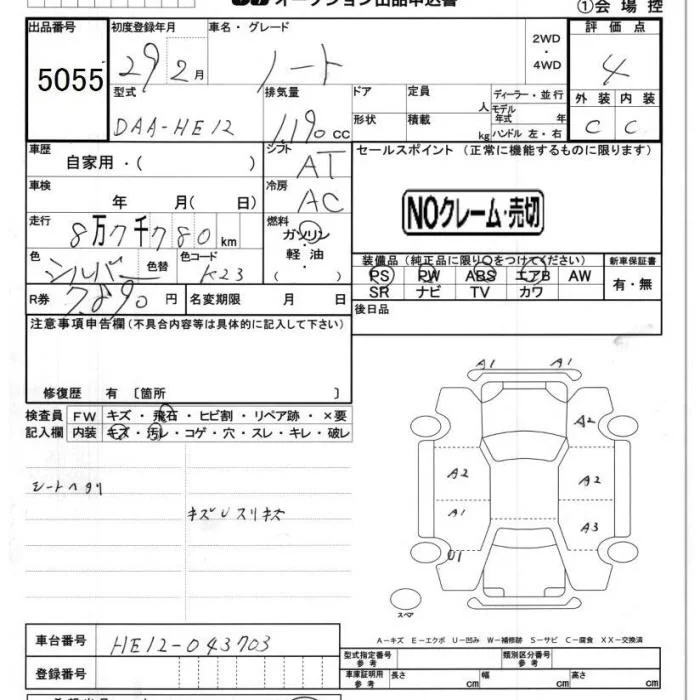 オークション出品申込書
①会場控
出品番号 初度登録年月 車名・グレード 2WD・4WD 評価点
5055 29 2月 ノート 4
型式 排気量 ドア 定員 人 ディーラー・並行 外装 内装
DAA-HE12 1,190 cc 形状 積載 kg モデル年式 年 ハンドル 左・右 C C
車歴 自家用・( ) シフト AT セールスポイント (正常に機能するものに限ります)
車検 年 月( 日) 冷房 AC
NOクレーム・売切
走行 8万7千780km 燃料 ガソリン・軽油・( )
色 シルバー 色替 色コード K23
装備品 (純正品に限り○をつけてください) 新車保証書
PS PW ABS エアB AW 有・無
SR ナビ TV カワ
R券 7,890円 名変期限 月 日
後日品
注意事項申告欄(不具合内容等は具体的に記入して下さい)
修復歴 有 〔箇所 〕
検査員 FW キズ・飛石・ヒビ割・リペア跡・×要
記入欄 内装 キズ・汚レ・コゲ・穴・スレ・キレ・破レ
シートヘタリ
キズUスリキズ
A1 A1
A2
A2 A2
A1 A3
U1
スペア
A-キズ E-エクボ U-凹み W-補修跡 S-サビ C-腐食 XX-交換済
車台番号 HE12-043703
型式指定番号 参考 類別区分番号 参考
登録番号 車庫証明用 参考 長さ cm 幅 cm 高さ cm